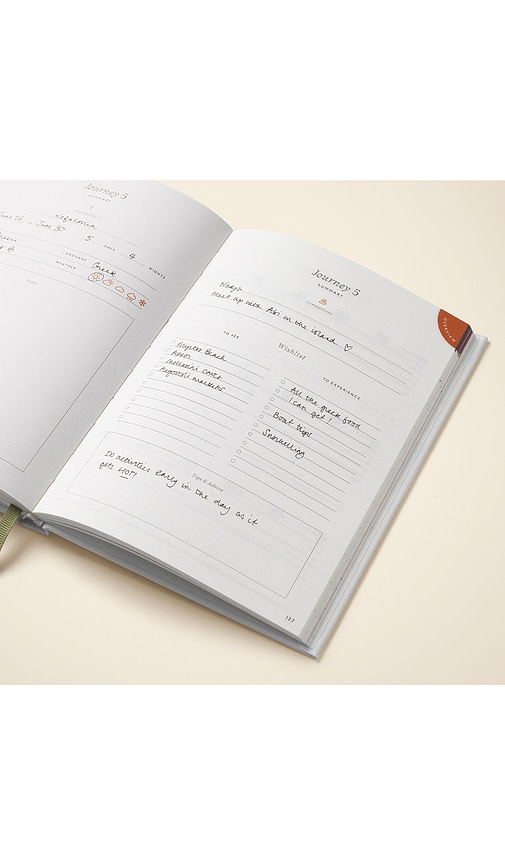 Journey 5
SUMMARY
Kefalonia
June 30
5 DAYS 4 NIGHTS
LANGUAGE Greek
WEATHER
Journey 5
SUMMARY
Companions
Nadja
Meet up with Abi on the island ♡
Wishlist
TO SEE
Myrtos Beach
Assos
Melissani caves
Argostoli markets
TO EXPERIENCE
All the greek food
I can get!
Boat trips
Snorkelling
Tips & Advice
Do activities early in the day as it
gets HOT!
127
OVERSEAS